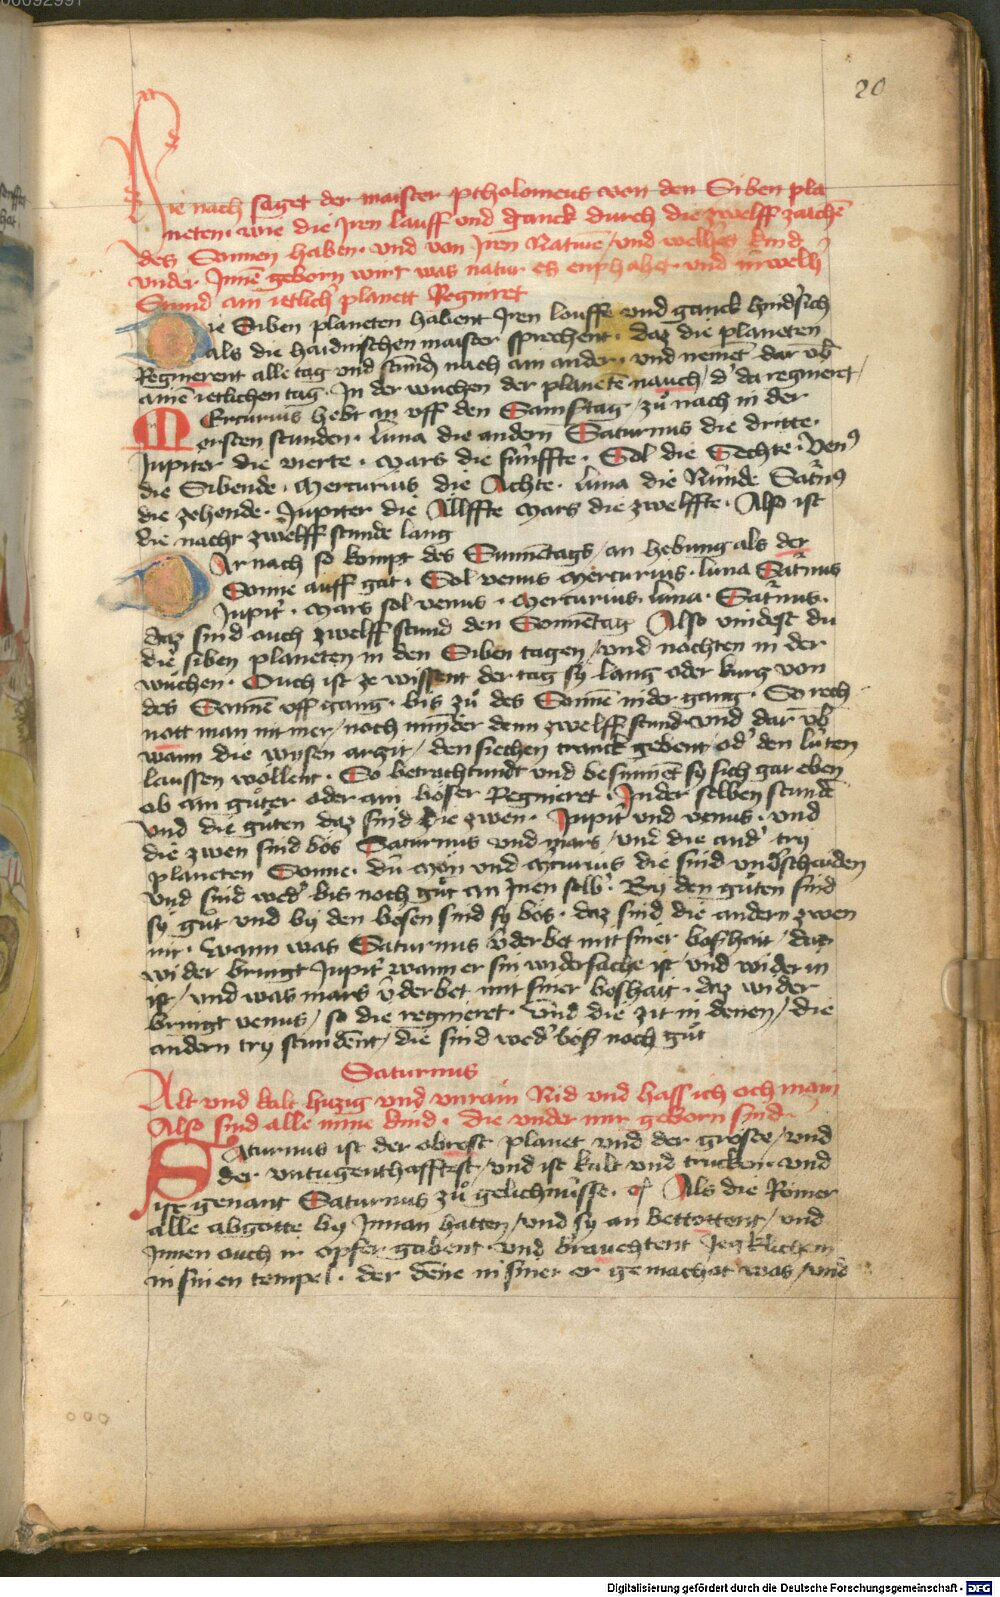 20
Hie nach saget der maister ptholomeus von den Siben pla
neten · wie die Jren lauff und ganck durch die zwelff zaichē
des Sonnen haben · und von Jren Natuͤre / und wellhes kind
under Jnnē geborn wirt was natur es enphahet · und in welh̄
Stund ain ietlich̄ planett Regniret
Die Siben planeten habent Jren louffe und ganck hind'sich
als die haidnischen maister sprechent · daz die planeten
Regnierent alle tag und stund nach ain ander · und nement dar ūb
ainē ietlichen tag · In der wuchen der planetē nauch / d' da regnieret /
Mercurius hebt an uff den Samstag / zuͦ nach in der
ersten stunden · luna die andern Saturnus die dritte ·
Jupiter die vierte · Mars die fúnffte · Sol die Sechte · Ven9
die Sibende · Mercurius die Achte · luna die Núnde Satn9
die zehende · Jupiter die Allffte Mars die zwelffte · Also ist
die nacht zwelff stunde lang
Dar nach so kompt des Sunnētags / an hebung als der
Sonne auff gat · Sol venus Mercurius · luna Satnus
Jupit' · Mars sol venus · Mercurius · luna · Satnus ·
daz sind ouch zwelff stund den Sonnētag Also vindest du
die siben planeten in den Siben tagen / und nächten in der
wuchen · Ouch ist ze wissent der tag sy lang oder kurg von
des Sonnē uff gang · bis zuͦ des Sonnē nider gang · So rech
nott man nit mer / noch minder denn zwelff stund · und dar ūb
wann die wysen artzit / den siechen tranck gebent / od' den lúten
laussen wöllent · So betrachtundt und besinnēt sy sich gar eben
ob ain guͦter oder ain böser Regnieret · In der selben stunde
und die guͦten daz sind die zwen · Jupit' und venus · und
die zwen sind bös Saturnus und mars / und die and' try
planeten Sonne · du Mon und Mcurius die sind und'schaiden
und sind wed' bös noch guͦt an Jnen selb' · By den guͦten sind
sy guͦt und by den bösen sind sy bös · daz sind die andern zwen
nit · Wann was Saturnus v̄derbet mit siner boshait / daz
wider bringt Jupit' wann er sin widersache ist / und wider in
ist / und was mars v̄derbet mit siner boshait · daz wider
bringt venus / so die regnieret · Und die zit in denen / die
andern try stundent / die sind wed' bös noch guͦt
Saturnus
Alt und kalt hitzig und unrain Nid und hass ich och main
Also sind alle mine kind · die under mir geborn sind ·
Saturnus ist der obrost planet und der gröste / und
der untugenthafftest / und ist kalt und trucken · und
ist genant Saturnus zuͦ gelichnússe · Als die Römer
alle abgötte by Jnnan hatten / und sy an bettottent / und
Jnnen ouch ir opfer gabent · und brauchtent Jegklichem
in sinen tempel · der dēne in siner er gemachet was / und
Digitalisierung gefördert durch die Deutsche Forschungsgemeinschaft · DFG